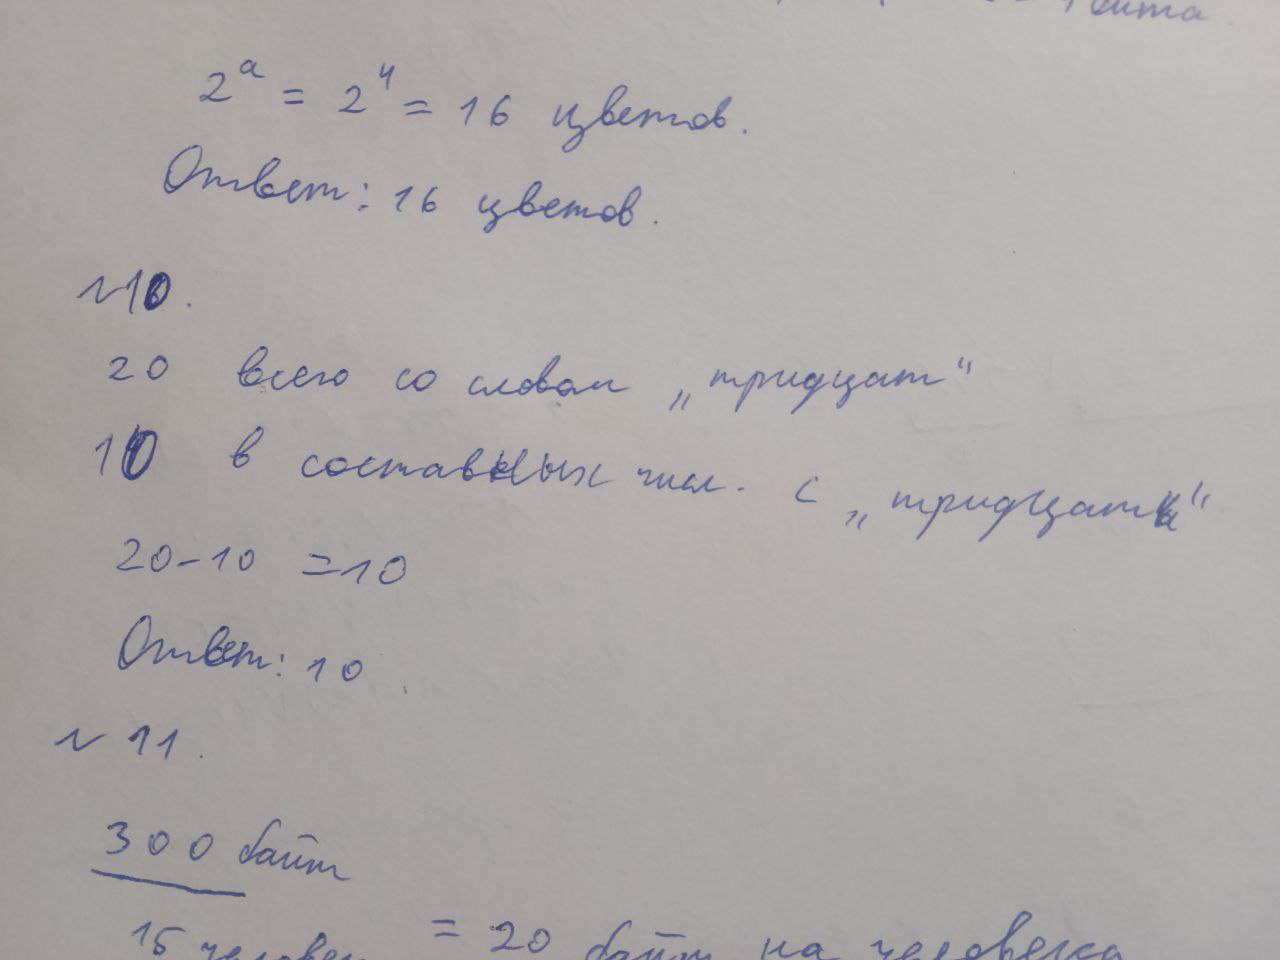 бита
2^a = 2^4 = 16 цветов.
Ответ: 16 цветов.
№10.
20 всего со словом „тридцат“
10 в составных числ. с „тридцать“
20-10 =10
Ответ: 10
№ 11.
300 байт
15 человек = 20 байт на человека